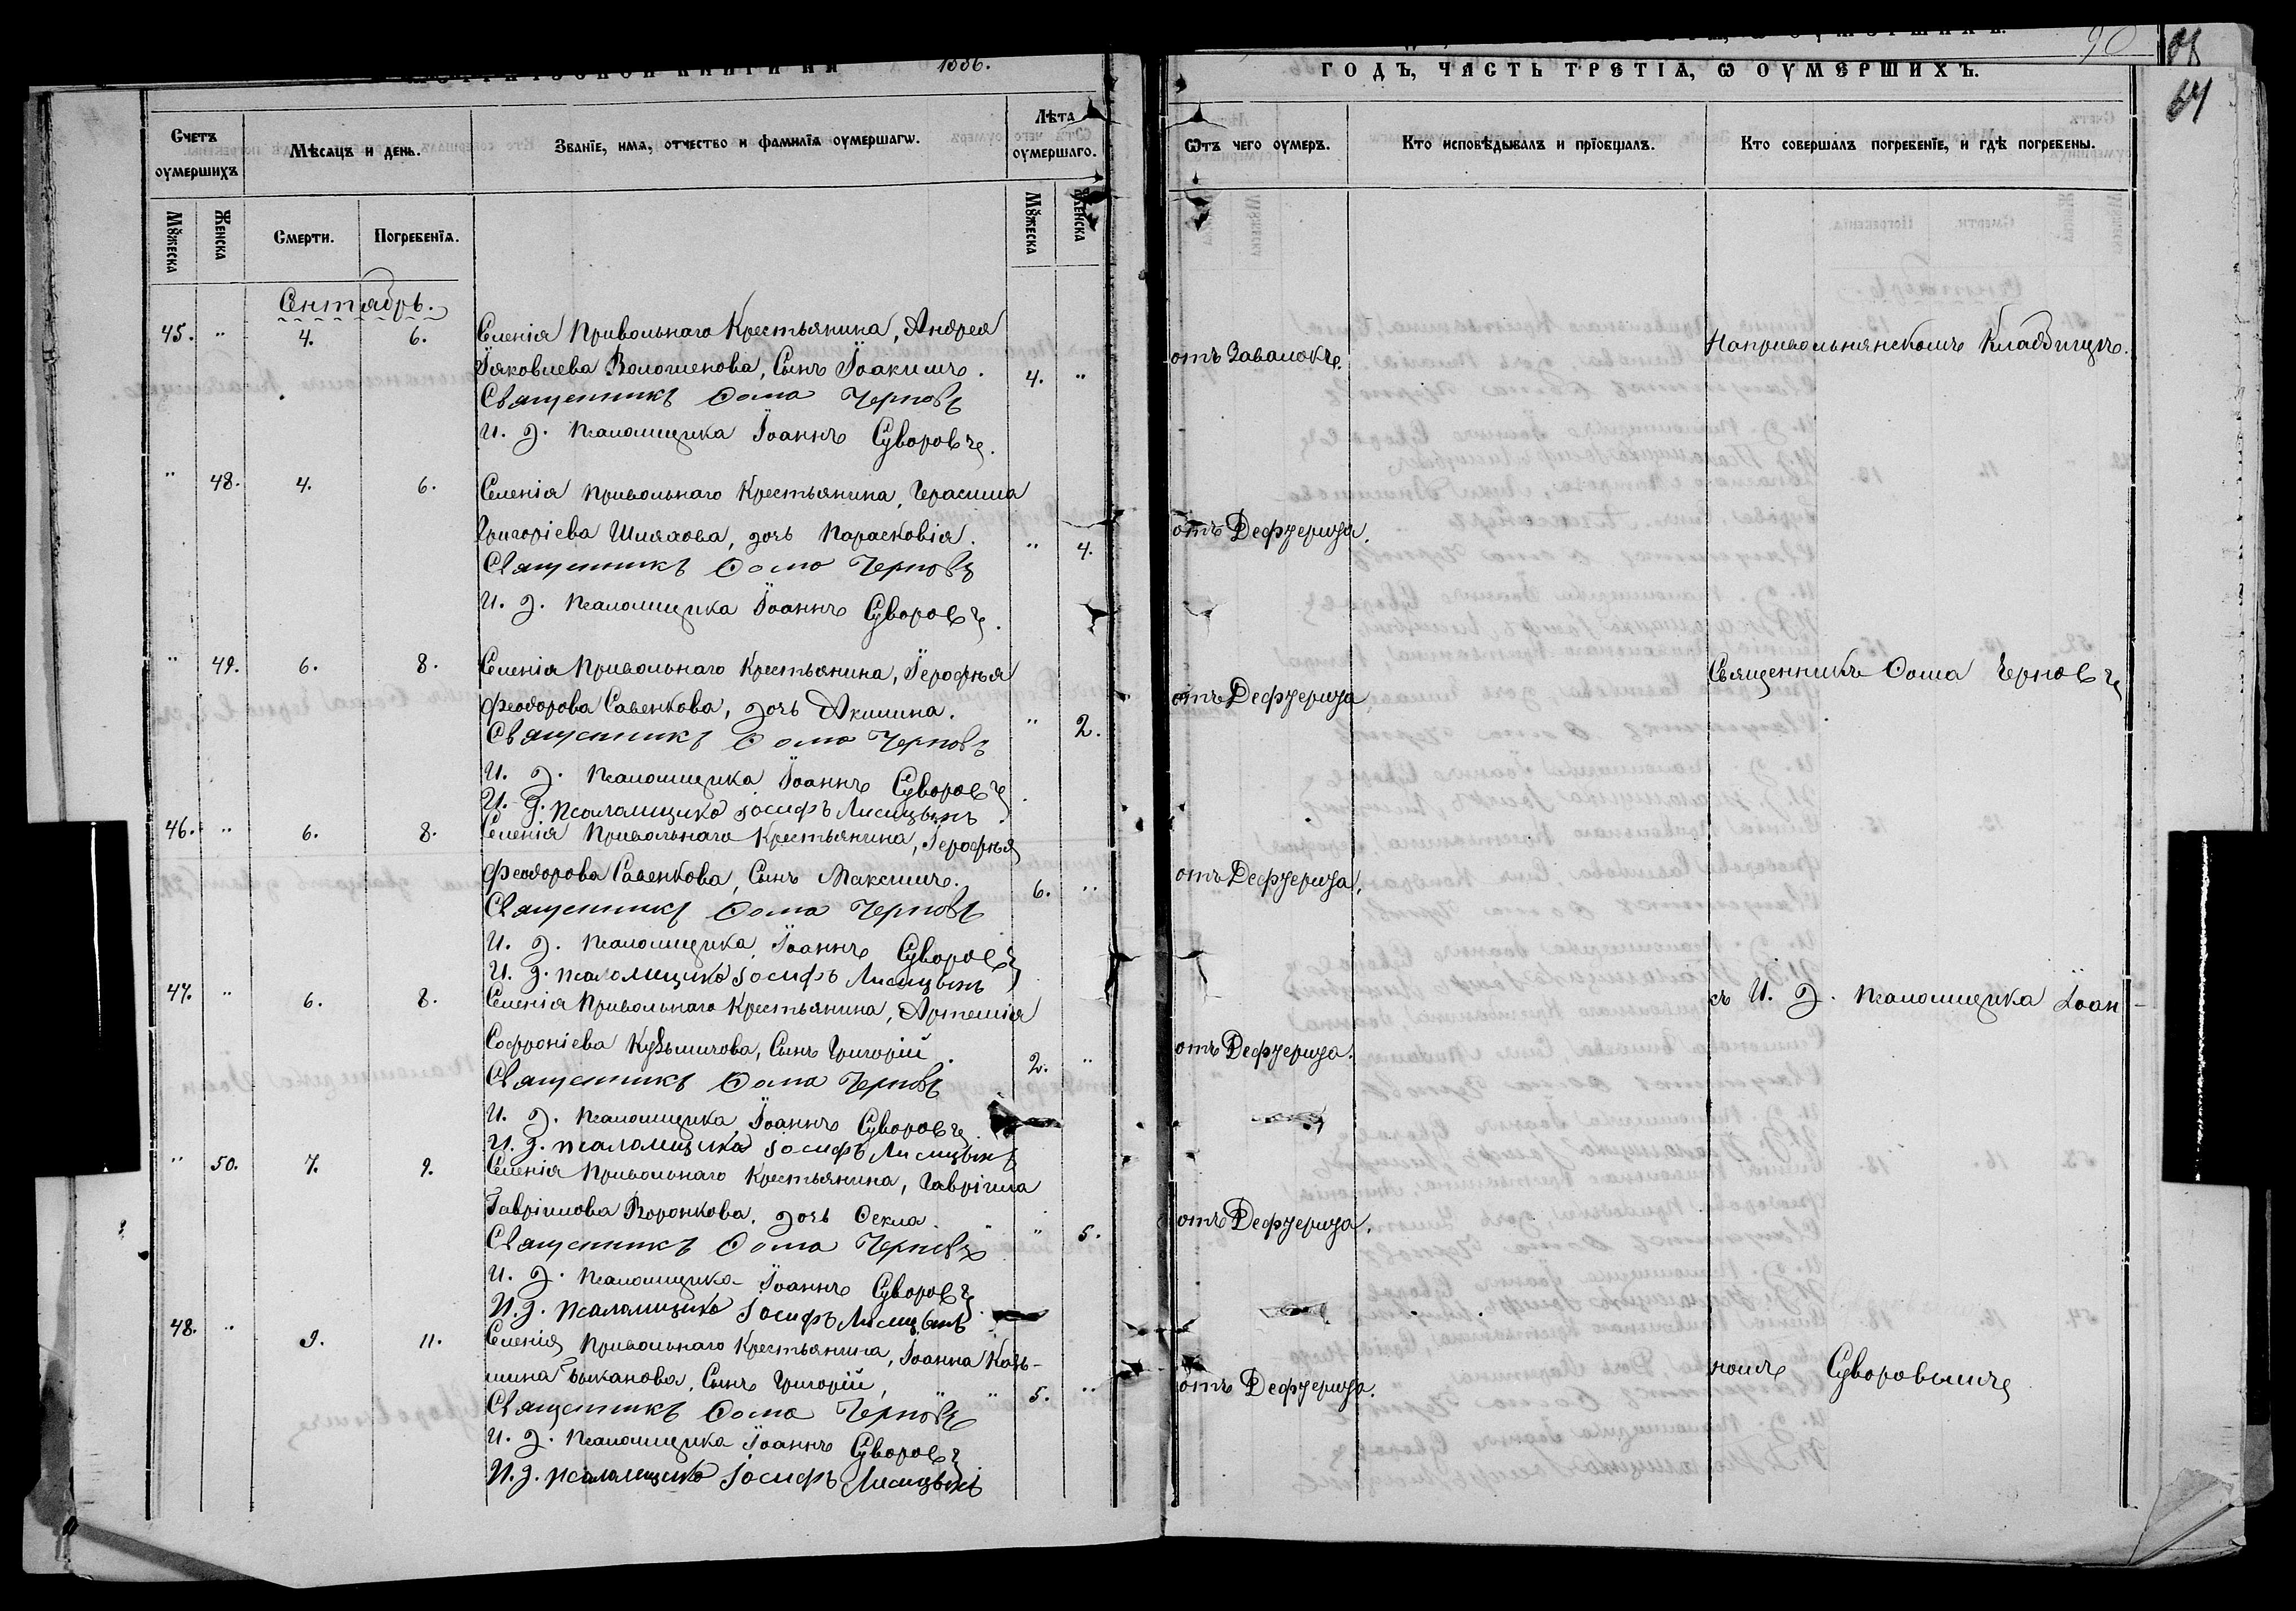 1886.
ГОДЪ, ЧАСТЬ ТРЕТІѦ, Ѡ ОУМЕРШИХЪ.
64
Счетъ оумершихъ
Мѣсяцъ и день.
Званїе, имѧ, отчество и фамилїѧ оумершагѡ.
Лѣта оумершаго.
Ѿъ чего оумеръ.
Кто исповѣдывалъ и прїобщалъ.
Кто совершалъ погребенїе, и гдѣ погребены.
Мꙋжеска
Женска
Смерти.
Погребенїѧ.
Мꙋжеска
Женска
Сентябрь.
45. " 4. 6. Селенія Привольнаго Крестьянина, Андрея
Яковлева Волошенова, Сынъ Іоакимъ. 4. " отъ Завалокъ. На привольнянскомъ Кладбищѣ.
Священникъ Ѳома Черновъ
И. д. псаломщика Іоаннъ Суворовъ.
" 48. 4. 6. Селенія Привольнаго Крестьянина, Герасима
Григоріева Шляхова, дочь Парасковія. " 4. отъ Дефтерита.
Священникъ Ѳома Черновъ
И. д. псаломщика Іоаннъ Суворовъ.
" 49. 6. 8. Селенія Привольнаго Крестьянина, Іерофѣя
Феодорова Савенкова, дочь Акилина. " 2. отъ Дефтерита Священникъ Ѳома Черновъ
Священникъ Ѳома Черновъ
И. д. псаломщика Іоаннъ Суворовъ.
И. д. псаломщика Іосифъ Лисицынъ
46. " 6. 8. Селенія Привольнаго Крестьянина, Іерофѣя
Феодорова Савенкова, Сынъ Максимъ. 6. " отъ Дефтерита.
Священникъ Ѳома Черновъ
И. д. псаломщика Іоаннъ Суворовъ
И. д. псаломщика Іосифъ Лисицынъ
47. " 6. 8. Селенія Привольнаго Крестьянина, Артемія
Софроніева Кузьмичова, Сынъ Григорій. 2. " отъ Дефтерита. съ И. Д. псаломщика Іоан-
Священникъ Ѳома Черновъ
И. д. псаломщика Іоаннъ Суворовъ.
И. д. псаломщика Іосифъ Лисицынъ
" 50. 7. 9. Селенія Привольнаго Крестьянина, Гавріила
Гавріилова Воронкова, дочь Ѳекла. " 5. отъ Дефтерита.
Священникъ Ѳома Черновъ
И. д. псаломщика Іоаннъ Суворовъ.
И. д. псаломщика Іосифъ Лисицынъ
48. " 9. 11. Селенія Привольнаго Крестьянина, Іоанна Козь-
мина Быканова, Сынъ Григорій, 5. " отъ Дефтерита. номъ Суворовымъ
Священникъ Ѳома Черновъ
И. д. псаломщика Іоаннъ Суворовъ
И. д. псаломщика Іосифъ Лисицынъ